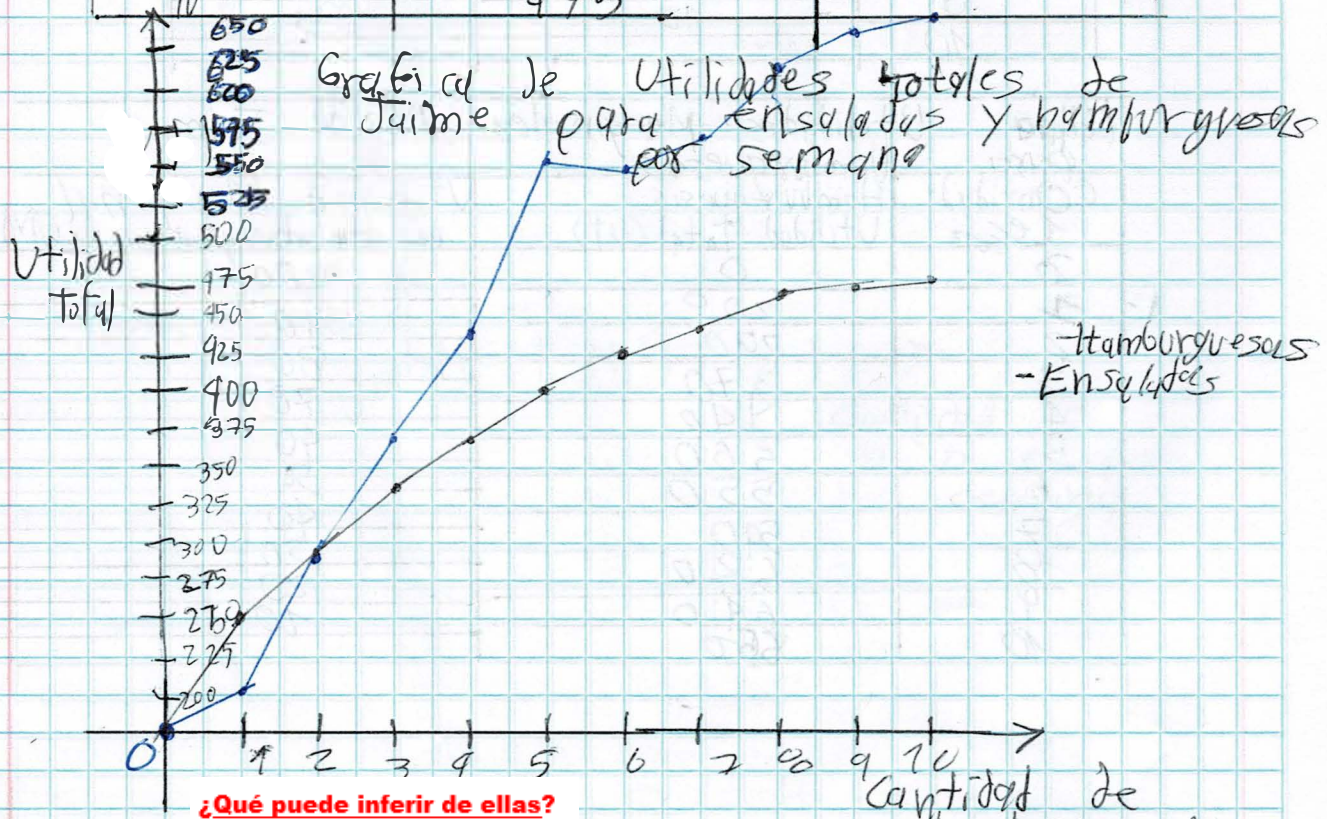 650
625
600
575
550
525
500
475
450
425
400
375
350
325
300
275
250
225
200
Grafica de Utilidades totales de
Jaime para ensaladas y hamburguesas
por semana
Utilidad
total
-Hamburguesas
-Ensaladas
0 1 2 3 4 5 6 7 8 9 10
Cantidad de
¿Qué puede inferir de ellas?